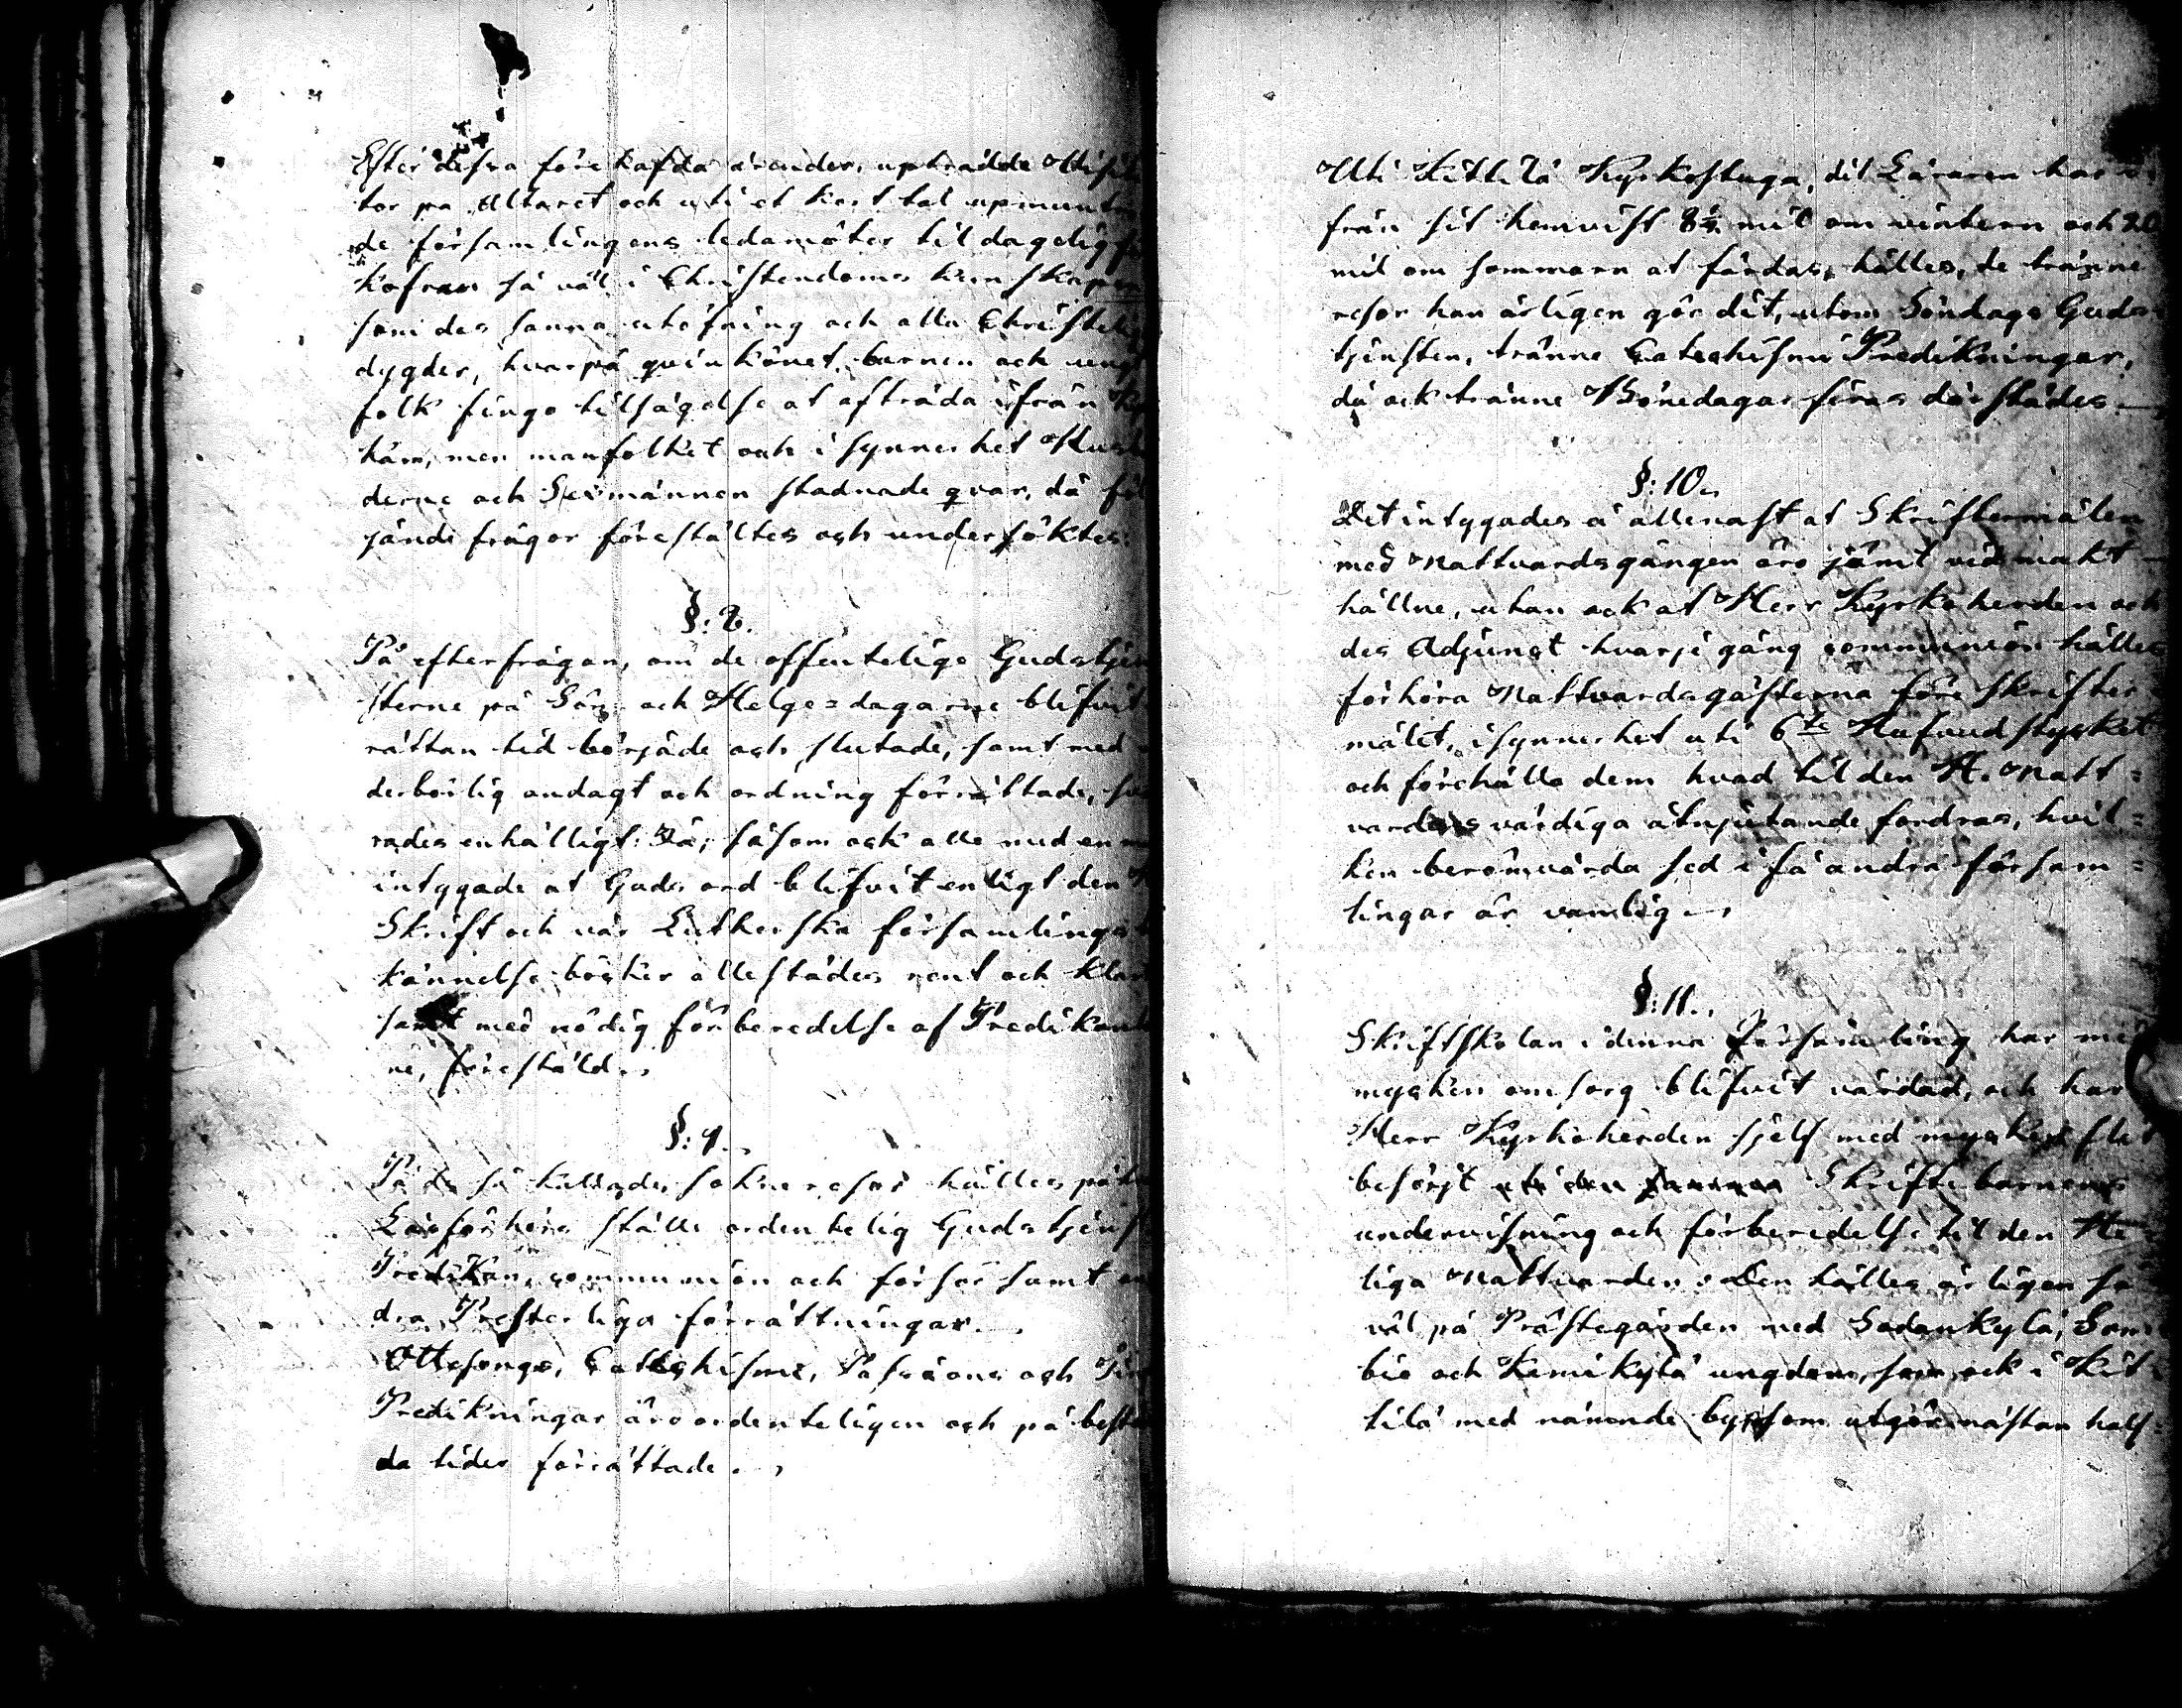 Efter dessa förehafda ärender, upträdde Visita
tor på Altaret och uti et kort tal upmuntra
de församlingens ledamöter til dagelig
kofran så väl i Christendoms kunskapen
som des sanna utöfning och alla Christelig
dygder, hvarpå quinkönet, barnen och ung
folk fingo tilsägelse at afträda ifrån
häm, men manfolket och i synnerhet Hus
derne och Sexmännen stadnade qvar, då föl
jande frågor förestältes och undersöktes:
§: 8.
På efterfrågan, om de offentelige Gudstjen
sterne på Sön- och Helge-dagarne blifvit
rättan tid började och slutade, samt med
derbörlig andagt och ordning förrättade, sva
rades enhälligt: Ja; såsom ock alla med en
intygade at Guds ord blifvit enligt den
Skrift och vår Lutherska församlings
kännelse böcker allestädes rent och klar
samt med nödig förberedelse af Predikante
ne, förestäld.
§: 9.
På de så kallade soknresor hålles på
Läsförhörs ställe ordentelig Gudstjenst
Predikan, communion och förhör samt an
dra Presterliga förrättningar.
Ottesongs, Catechismi, Passions och
Predikningar äro ordenteligen och på beständ
da tider förrättade.
Uti Kittilä Kyrkostuga, dit Läraren har
från sit hemvist 8½ mil om vintern och 20
mil om sommaren at färdas, hålles, de tränne
resor han årligen gör dit, utom Söndags Guds
tjensten, tränne Catechismi Predikningar,
då ock tränne Bönedagar firas därstädes
§: 10.
Det intygades ei allenast at Skriftermålen
med Nattvardsgången äro jämt vid makt
hållne, utan ock at Herr Kyrkoherden och
des Adjunct hvarje gång communion hålles
förhöra Nattvardsgästerna före skrifter
målet, i synnerhet uti 6te Hufvudstycket
och förehålla dem hvad til den H. Natt=
vardens värdiga åtnjutande fordras, hvil=
ken berömvärda sed i få andra försam=
lingar är vanlig.
§: 11.
Skriftskolan i denna Församling har med
mycken omsorg blifvit vårdad, och har
Herr Kyrkoherden sjelf med mycken flit
besörjt Skriftebarnens
undervisning och förberedelse til den He
liga Nattvarden. Den hålles årligen så
väl på Prästegården med Sodankylä, Som
bio och Kemikylä ungdom, som ock i Kit
tilä med närmande byar som utgör nästan half=